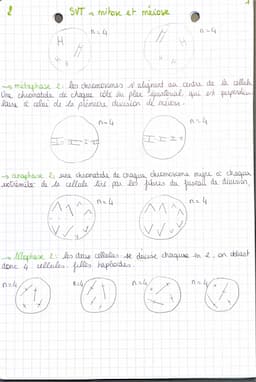 2 SVT → mitose et méiose 1
n=4 n=4
→ métaphase 2: les chromosomes s'alignent au centre de la cellule
Une chromatide de chaque côté du plan équatorial qui est perpendicu-
laire à celui de la première division de méiose.
n=4 n=4
→ anaphase 2: une chromatide de chaque chromosome migre à chaque
extrémité de la cellule tiré par les fibres du fuseau de division.
n=4 n=4
→ télophase 2: les deux cellules se divise chacune en 2, on obtient
donc 4 cellules filles haploïdes.
n=4 n=4 n=4 n=4